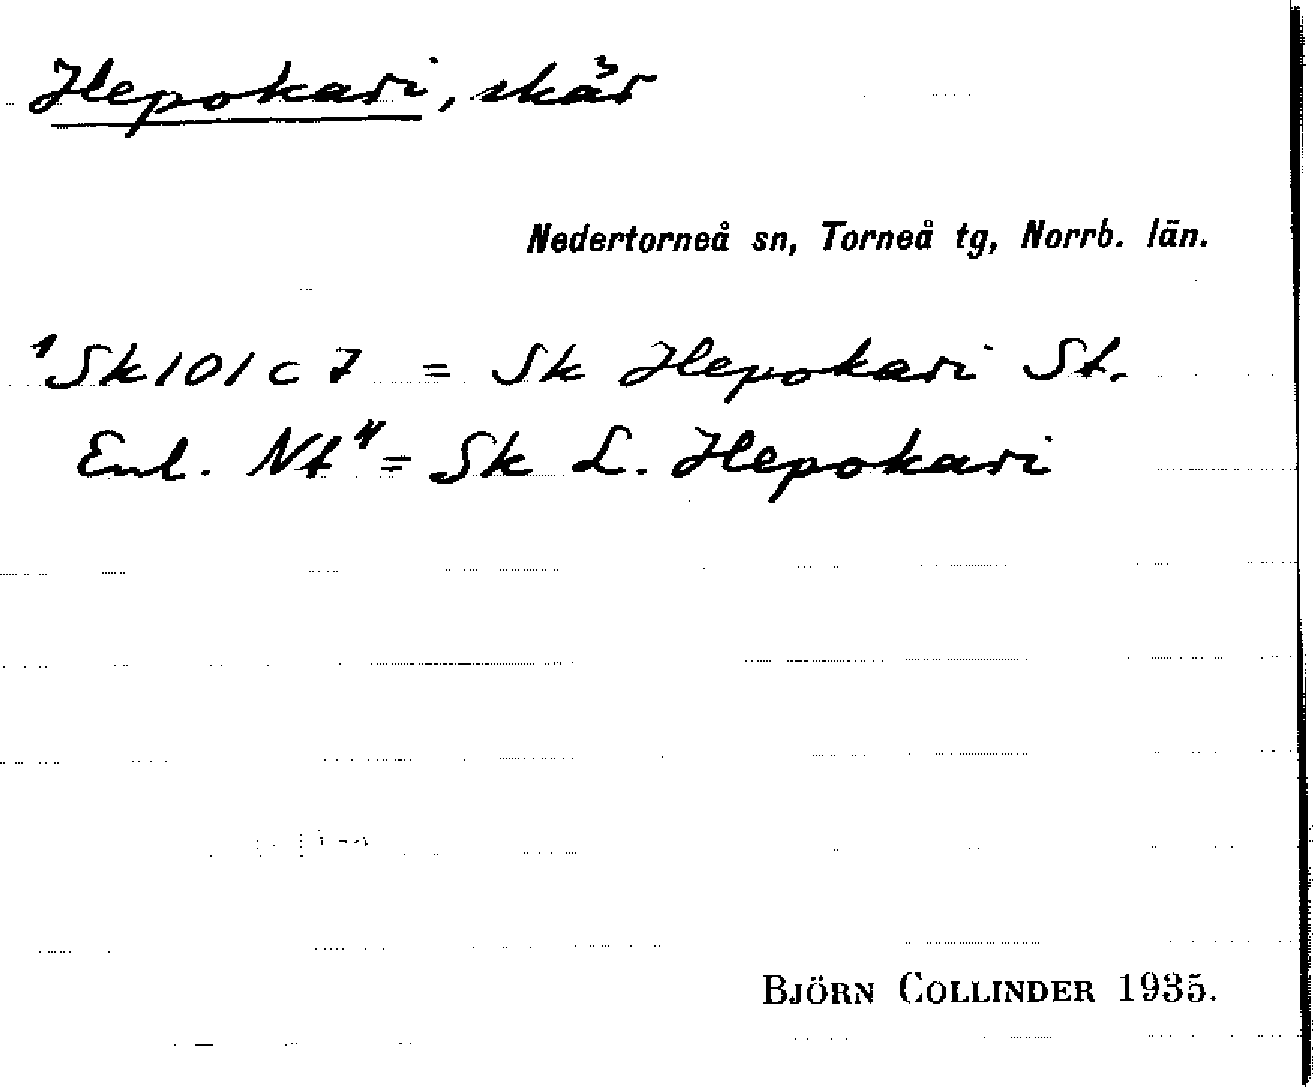 Hepokari, skär
Nedertorneå sn, Torneå tg, Norrb. län.
¹Sk101c7 = Sk Hepokari St.
Enl. Nt⁴ = Sk L. Hepokari
BJÖRN COLLINDER 1935.